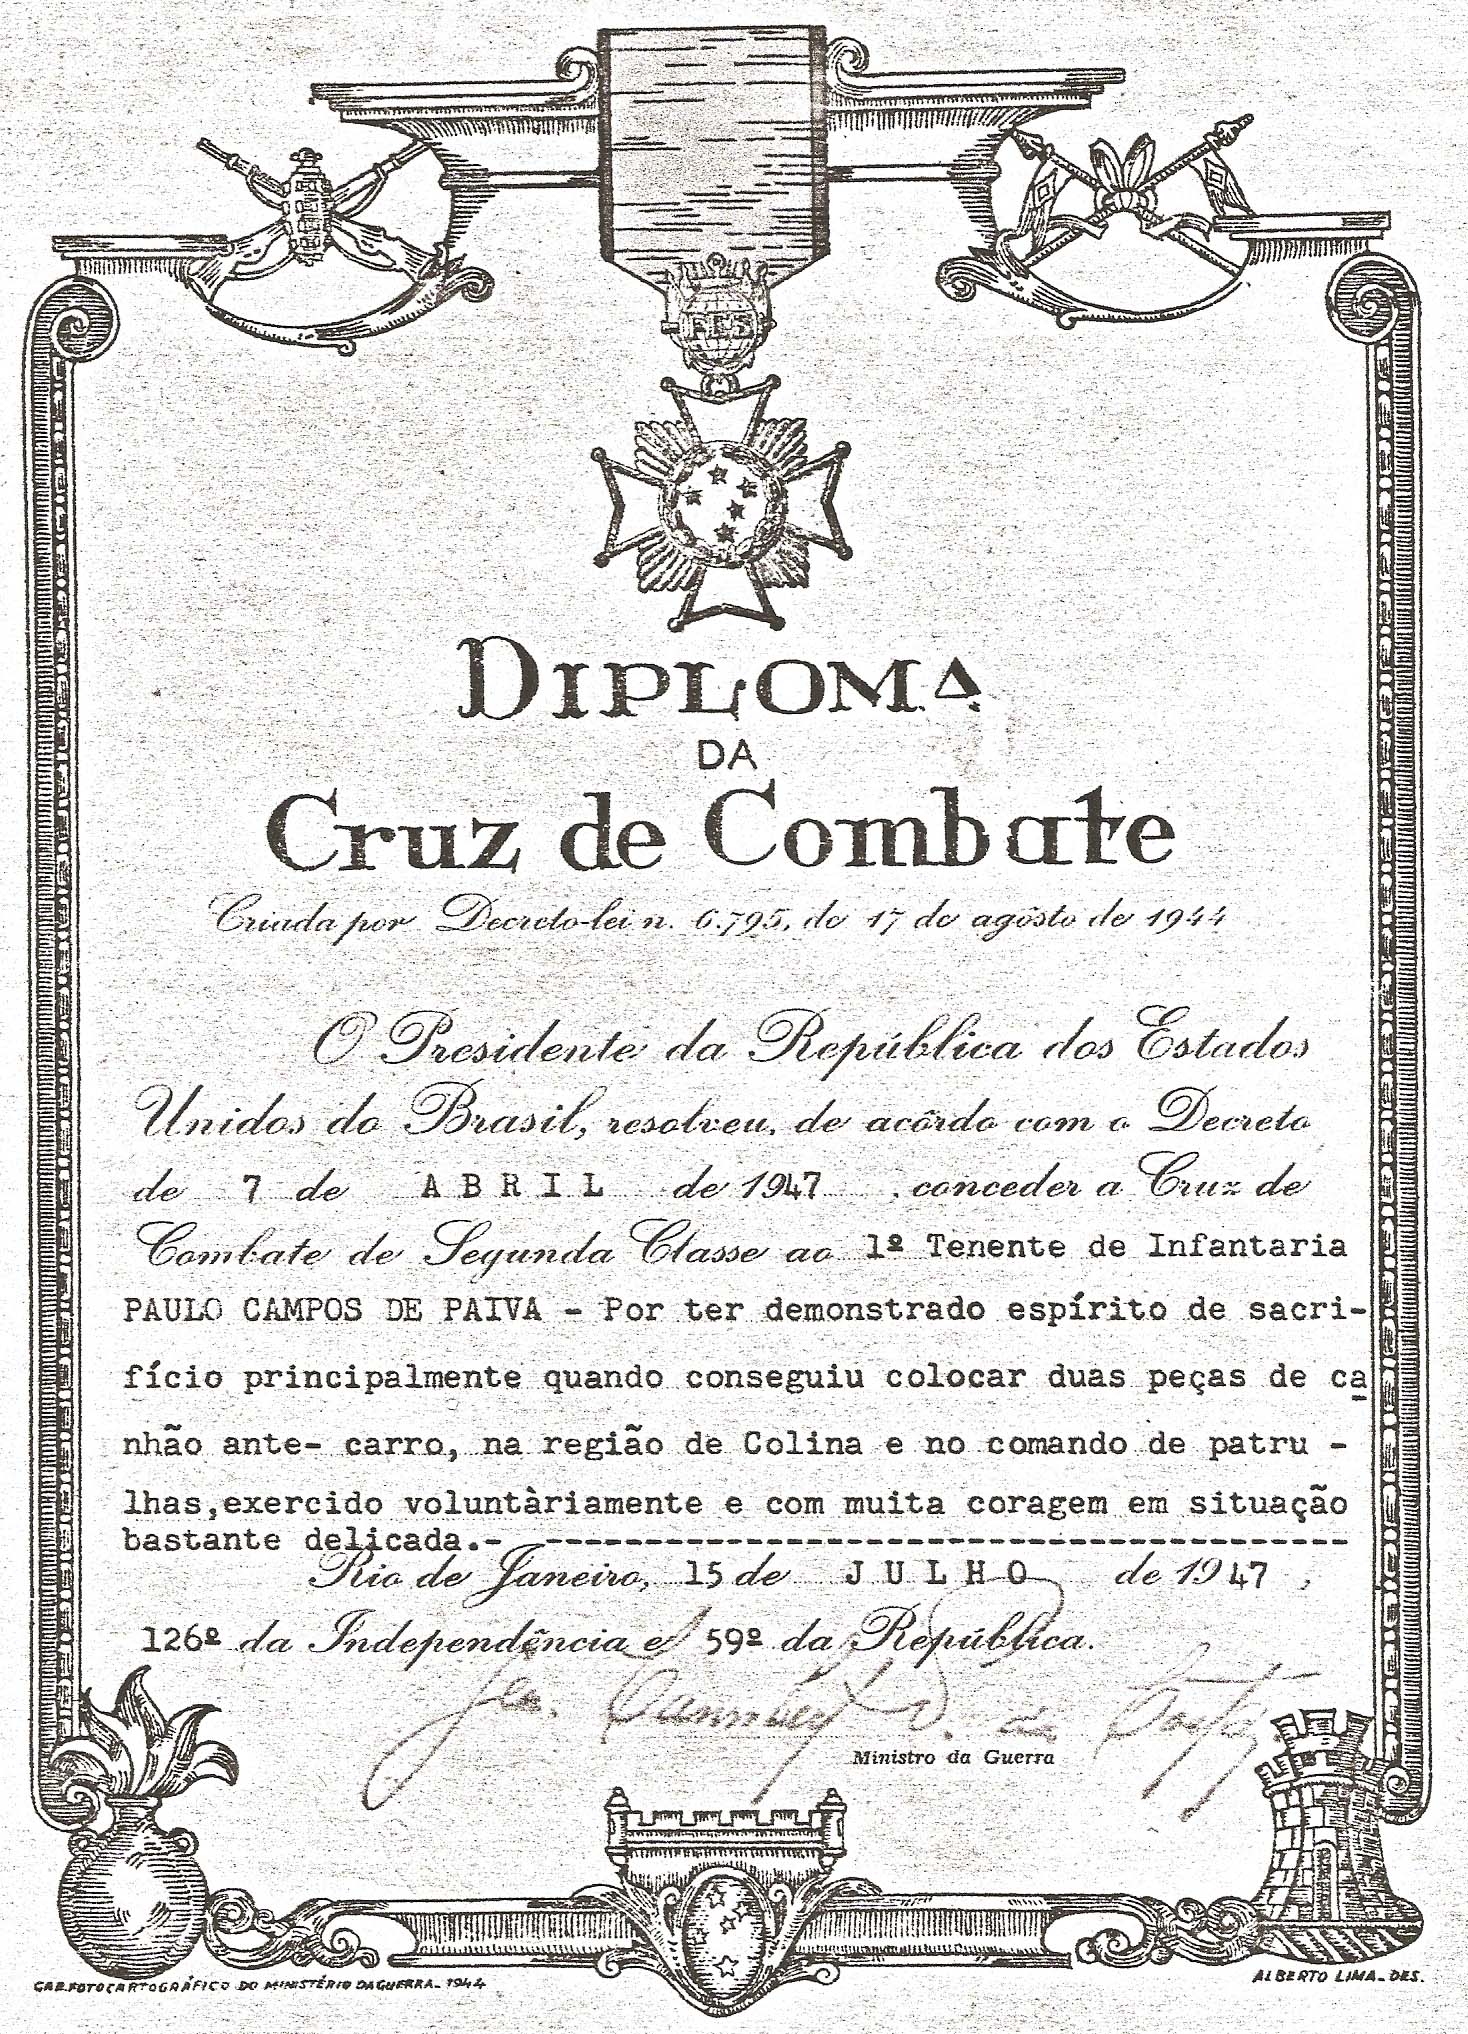 FEB
DIPLOMA
DA
Cruz de Combate
Criada por Decreto-lei n. 6.795, de 17 de agôsto de 1944
O Presidente da República dos Estados
Unidos do Brasil, resolveu, de acôrdo com o Decreto
de 7 de ABRIL de 1947, conceder a Cruz de
Combate de Segunda Classe ao 1º Tenente de Infantaria
PAULO CAMPOS DE PAIVA - Por ter demonstrado espírito de sacri-
fício principalmente quando conseguiu colocar duas peças de ca
nhão ante- carro, na região de Colina e no comando de patru -
lhas,exercido voluntàriamente e com muita coragem em situação
bastante delicada.- ----------------------------------------
Rio de Janeiro, 15 de JULHO de 1947,
126º da Independência e 59º da República.
Gen. Canrobert P. da Costa
Ministro da Guerra
GAB.FOTOCARTOGRÁFICO DO MINISTÉRIO DA GUERRA_ 1944
ALBERTO LIMA_DES.